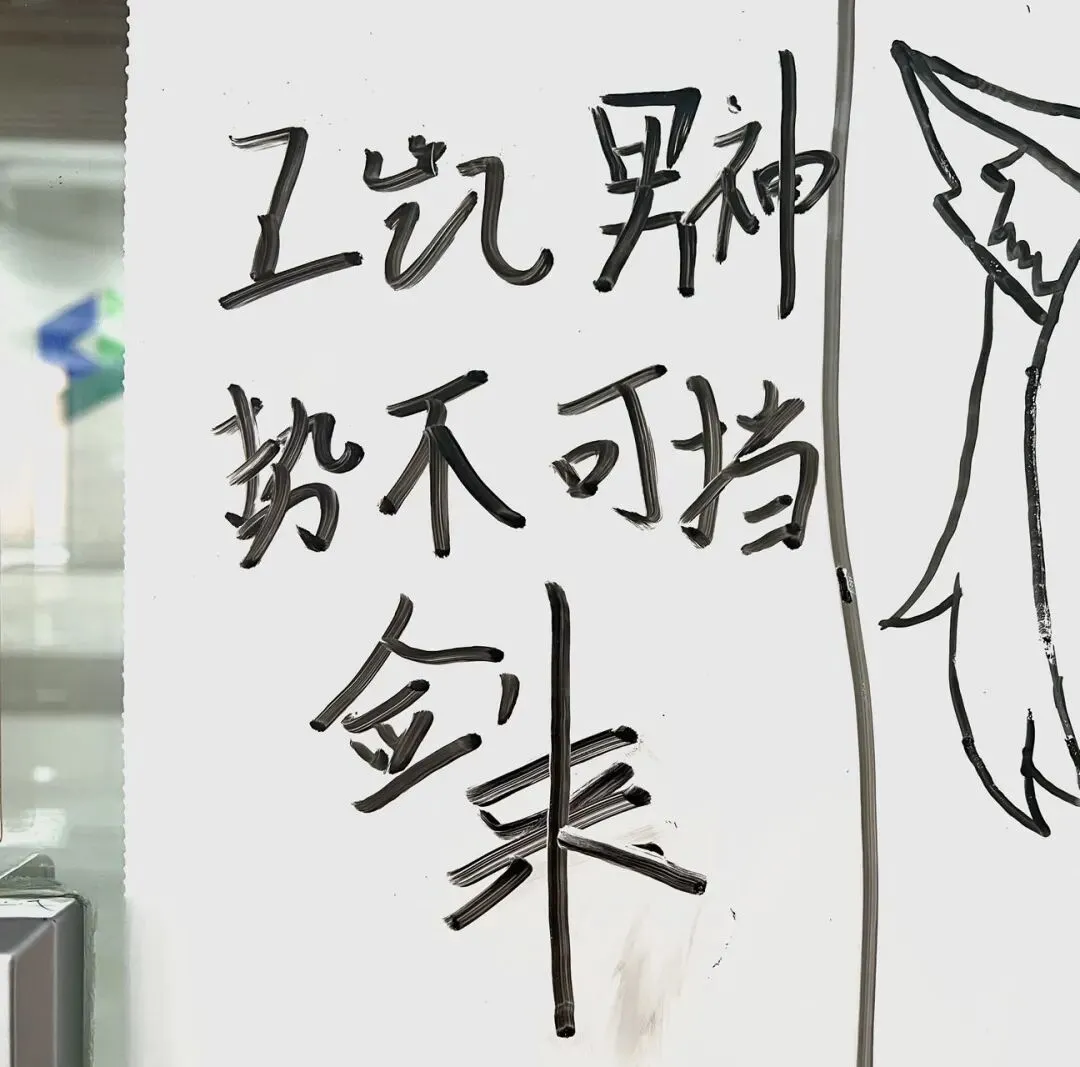 工凯男神
势不可挡
剑来